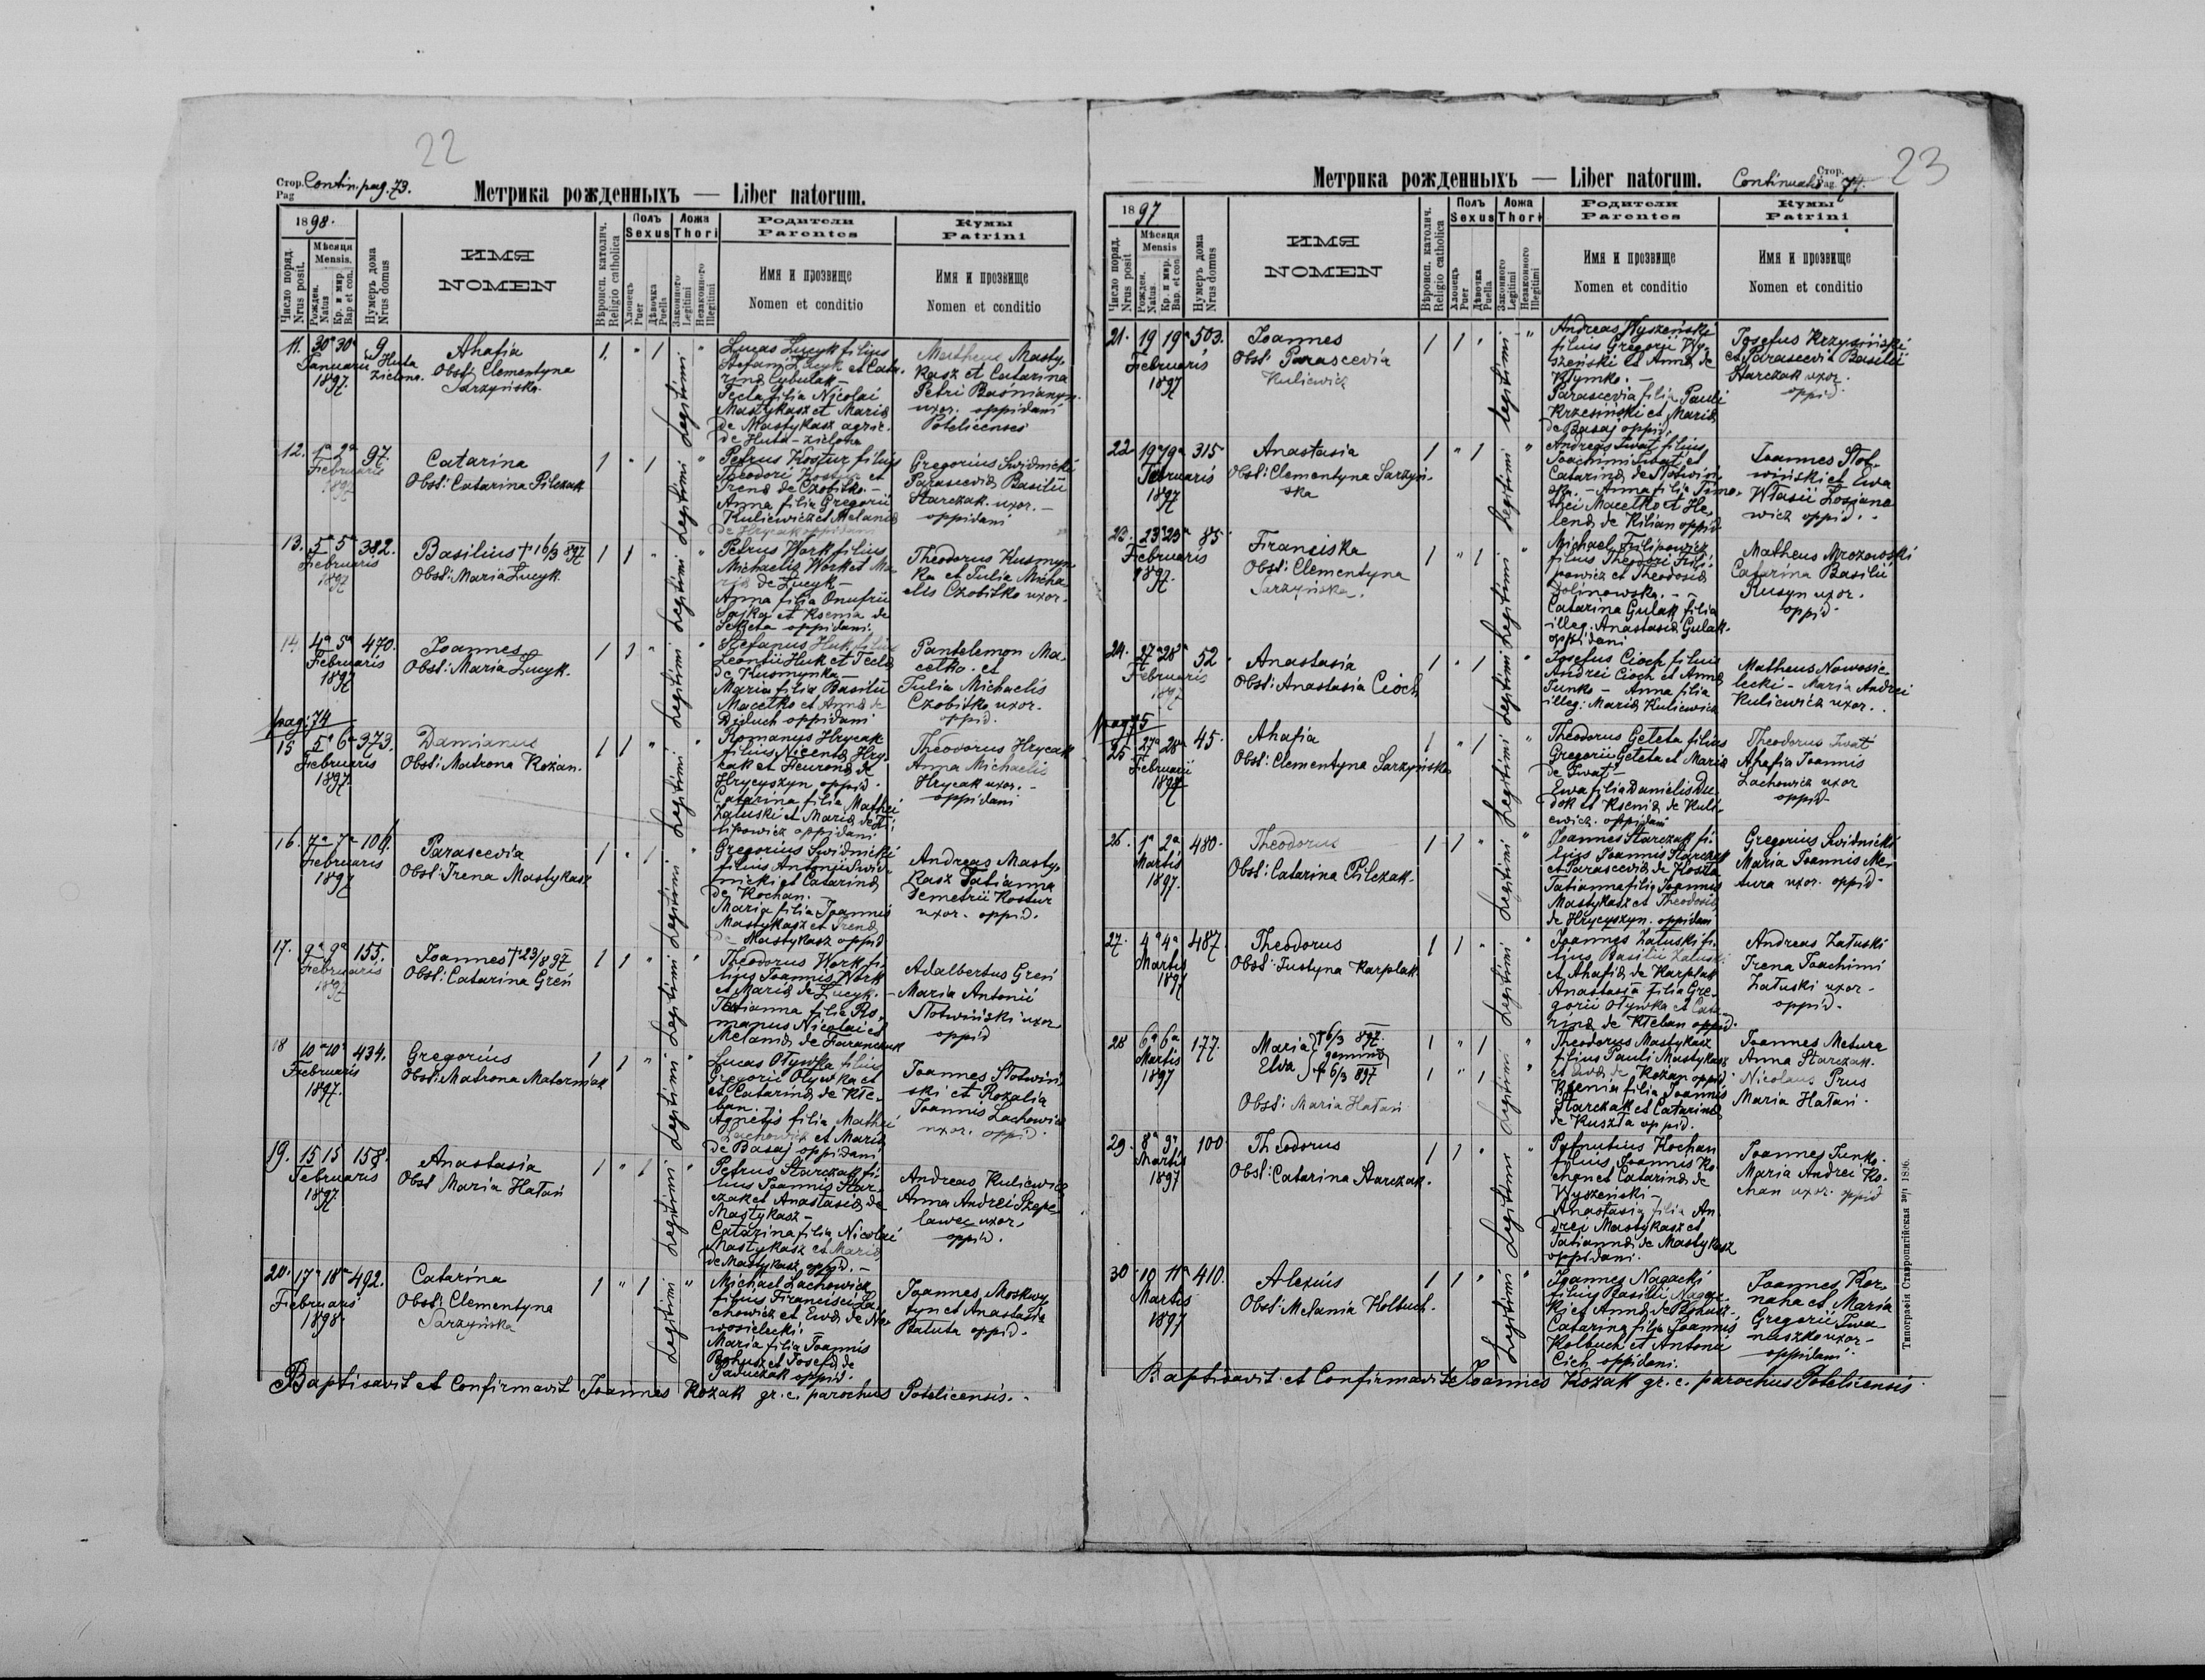 22
Стор. Contin. pag. 73.
Pag
Метрика рожденныхъ — Liber natorum.
1898.
Число поряд.
Nrus posit.
Мѣсяця
Mensis.
Рожден.
Natus
Кр. и мир
Bap et con.
Нумеръ дома
Nrus domus
ИМЯ
NOMEN
Вѣроисп. католич.
Religio catholica
Полъ
Sexus
Хлопецъ
Puer
Дѣвочка
Puella
Ложа
Thori
Законного
Legitimi
Незаконного
Illegitimi
Родители
Parentes
Имя и прозвище
Nomen et conditio
Кумы
Patrini
Имя и прозвище
Nomen et conditio
11. 30ª 30ª 9
Januarii Huta
1897. zielona.
Ahafia
Obst: Clementyna
Sarzyńska.
1. " 1 Legitimi "
Lucas Lucyk filius
Stefani Lucyk et Cata-
rinæ Cybulak –
Tecla filia Nicolai
Mastykasz et Mariæ
de Mastykasz agric.
de Huta-zielona
Matheus Masty-
kasz et Catarina
Petri
uxor. oppidani
Potelicenses
12. 1ª 2ª 97.
Februaris
1897
Catarina
Obst: Catarina Pilczak
1 " 1 Legitimi "
Petrus Kostur filius
Theodori Kostur et
Irenæ de Czobitko. –
Anna filia Gregorii
Kuliewicz et Melaniæ
de Hrycak oppidani
Gregorius Swidnicki
Parascevia Basilii
Starczak. uxor. –
oppidani
13. 5ª 5ª 382.
Februaris
1897
Basilius † 16/3 897
Obst: Maria Lucyk.
1 1 " Legitimi "
Petrus Work filius
Michaelis Work et Ma-
riæ de Lucyk –
Anna filia Onufrii
Sajka et Ksenia de
Seketa oppidani.
Theodorus Kusmyn-
ka et Julia Micha-
elis Czobitko uxor.
14 4ª 5ª 470.
Februaris
1897
Joannes
Obst: Maria Lucyk.
1 1 " Legitimi "
Stefanus Huk filius
Leontii Huk et Teclæ
de Kusmynka –
Maria filia Basilii
Macełko et Annæ de
Diduch oppidani
Pantelemon Ma-
cełko. et
Julia Michaelis
Czobitko uxor.
oppid.
pag: 74
15 5ª 6ª 373.
Februaris
1897.
Damianus
Obst: Matrona Kozan.
1 1 " Legitimi "
Romanus Hrycak
filius Nicentæ Hry-
cak et Feuronæ de
Hrycyszyn oppid.
Catarina filia Mathei
Załuski et Mariæ de Fi-
lipowicz oppidani
Theodorus Hrycak
Anna Michaelis
Hrycak uxor. –
oppidani
16. 7ª 7ª 106.
Februaris
1897
Parascevia
Obst: Irena Mastykasz
1 " 1 Legitimi "
Gregorius Swidnicki
filius Antonii Swid-
nicki et Catarinæ
de Kochan. –
Maria filia Joannis
Mastykasz et Irenæ
de Mastykasz oppid
Andreas Masty-
kasz Tatianna
Demetrii Kostur
uxor. oppid.
17. 9ª 9ª 155.
Februaris
1897
Joannes † 23/8 97
Obst: Catarina Greń
1 1 " Legitimi "
Theodorus Work fi-
lius Joannis Work
et Mariæ de Lucyk. –
Tatianna filia Ro-
manus Nicolai et
Melaniæ de Faranczuk
Adalbertus Greń
Maria Antonii
Słotwiński uxor
oppid
18 10ª 10ª 434.
Februaris
1897.
Gregorius
Obst: Matrona
1 1 " Legitimi "
Lucas Oływka filius
Gregorii Oływka et
et Catarinæ de Kłe-
ban.
Agnetis filia Mathei
Lachowicz et Mariæ
de Basaj oppidani
Joannes Słotwiń-
ski et Rozalia
Joannis Lachowicz
uxor. oppid.
19. 15 15 158.
Februaris
1897
Anastasia
Obst Maria Hałań
1 " 1 Legitimi "
Petrus Starczak fi-
lius Joannis Star-
czak et Anastasiæ de
Mastykasz –
Catarina filia Nicolai
Mastykasz et Mariæ
de Mastykasz oppid. –
Andreas Kuliewicz
Anna Andrei Szepe-
lawec uxor,
oppid.
20. 17ª 18ª 492.
Februaris
1898
Catarina
Obst: Clementyna
Sarzyńska
1 " 1 Legitimi "
Michael Lachowicz
filius Francisci La-
chowicz et Ewæ de No-
wosielecki.
Maria filia Joannis
Bohusz et Josefæ de
Paduczak oppid.
Joannes Moskwy-
tyn et Anastasia
Batuta oppid.
Baptisavit et Confirmavit Joannes Kozak gr. c. parochus Potelicensis.
23
Метрика рожденныхъ — Liber natorum.
Continuatio Стор. Pag. 74.
1897
Число поряд.
Nrus posit
Мѣсяця
Mensis
Рожден.
Natus.
Кр. и мир.
Bap. et con
Нумеръ дома
Nrus domus
ИМЯ
NOMEN
Вѣроисп. католич.
Religio catholica
Полъ
Sexus
Хлопецъ
Puer
Дѣвочка
Puella
Ложа
Thori
Законного
Legitimi
Незаконного
Illegitimi
Родители
Parentes
Имя и прозвище
Nomen et conditio
Кумы
Patrini
Имя и прозвище
Nomen et conditio
21. 19 19ª 503.
Februaris
1897
Joannes
Obst: Parascevia
Kuliewicz
1 1 " Legitimi "
Andreas Wyszeński
filius Gregorii Wy-
szeński et Annæ de
Kłymko. –
Parascevia filia Pauli
Krzesiński et Mariæ
de Basaj oppid.
Josefus Krzysiński
et Parascevia Basilii
Starczak uxor.
oppid.
22 19ª 19ª 315
Februaris
1897
Anastasia
Obst: Clementyna Sarzyń-
ska
1 " 1 Legitimi "
Andreas Iwat filius
Joachimi Iwat et
Catarinæ de Słotwiń-
ska. – Anna filia Timo-
thei Macełko et He-
lenæ de Kilian oppid
Joannes Słot-
wiński et Ewa
Własii Łosjano-
wicz oppid.
23. 23ª 23ª 85
Februaris
1897.
Franciska
Obst: Clementyna
Sarzyńska.
1 " 1 Legitimi "
Michael Filipowicz
filius Theodori Fili-
powicz et Theodosiæ
Dolinowska. –
Catarina Gulak filia
illeg. Anastasiæ Gulak.
oppidani
Matheus Mrozowski
Catarina Basilii
Rusyn uxor.
oppid.
24. 27ª 28ª 52
Februaris
1897
Anastasia
Obst: Anastasia Cioch
1 " 1 Legitimi "
Josefus Cioch filius
Andrei Cioch et Annæ
Junko – Anna filia
illeg: Mariæ Kuliewicz
Matheus Nowosie-
lecki – Maria Andrei
Kuliewicz uxor.
pag 75
25 27ª 28ª 45.
Februarii
1897
Ahafia
Obst: Clementyna Sarzyńska
1 " 1 Legitimi "
Theodorus Geteta filius
Gregorii Geteta et Maria
de Iwat –
Ewa filia Danielis Du-
dok et Kseniæ de Kuli-
ewicz. oppidani
Theodorus Iwat
Ahafia Joannis
Lachowicz uxor
oppid
26. 1ª 2ª 480.
Martis
1897.
Theodorus
Obst: Catarina Pilczak.
1 1 " Legitimi "
Joannes Starczak fi-
lius Joannis Starczak
et Parasceviæ de Koszta
Tatianna filia Joannis
Mastykasz et Theodosiæ
de Hrycyszyn. oppidani
Gregorius Swidnicki
Maria Joannis Me-
tura uxor. oppid.
27. 4ª 4ª 487.
Martis
1897
Theodorus
Obst: Justyna Karplak
1 1 " Legitimi "
Joannes Załuski fi-
lius Basilii Załuski
et Ahafiæ de Karplak
Anastasia filia Gre-
gorii Oływka et Cata-
rinæ de Kłeban oppid.
Andreas Załuski
Irena Joachimi
Załuski uxor.
oppid.
28 6ª 6ª 177.
Martis
1897
Maria } † 6/3 897.
geminæ
Ewa } † 6/3 897
Obst: Maria Hałań
1 " 1 Legitimi "
1 " 1 "
Theodorus Mastykasz
filius Pauli Mastykasz
et Ewæ de Kożan oppid.
Ksenia filia Joannis
Starczak et Catarinæ
de Kuszta oppid.
Joannes Metura
Anna Starczak.
Nicolaus Prus
Maria Hałań.
29. 8ª 9ª 100
Martis
1897
Theodorus
Obst: Catarina Starczak.
1 1 " Legitimi "
Pafnutius Kochan
filius Joannis Ko-
chan et Catarinæ de
Wyszeński –
Anastasia filia An-
drei Mastykasz et
Tatiannæ de Mastykasz
oppidani.
Joannes Junko.
Maria Andrei Ko-
chan uxor. oppid
30 10 11ª 410.
Martis
1897
Alexius
Obst: Melania Holbuch.
1 1 " Legitimi "
Joannes Nagacki
filius Basilii Nagac-
ki et Annæ de Bohusz.
Catarina filia Joannis
Holbuch et Antonii
Cich oppidani.
Joannes Kor-
naha et Maria
Gregorii Iwa-
naszko uxor.
oppidani.
Baptisavit et Confirmavit Joannes Kozak gr. c. parochus Potelicensis
Типографія Ставропигійская 1896.